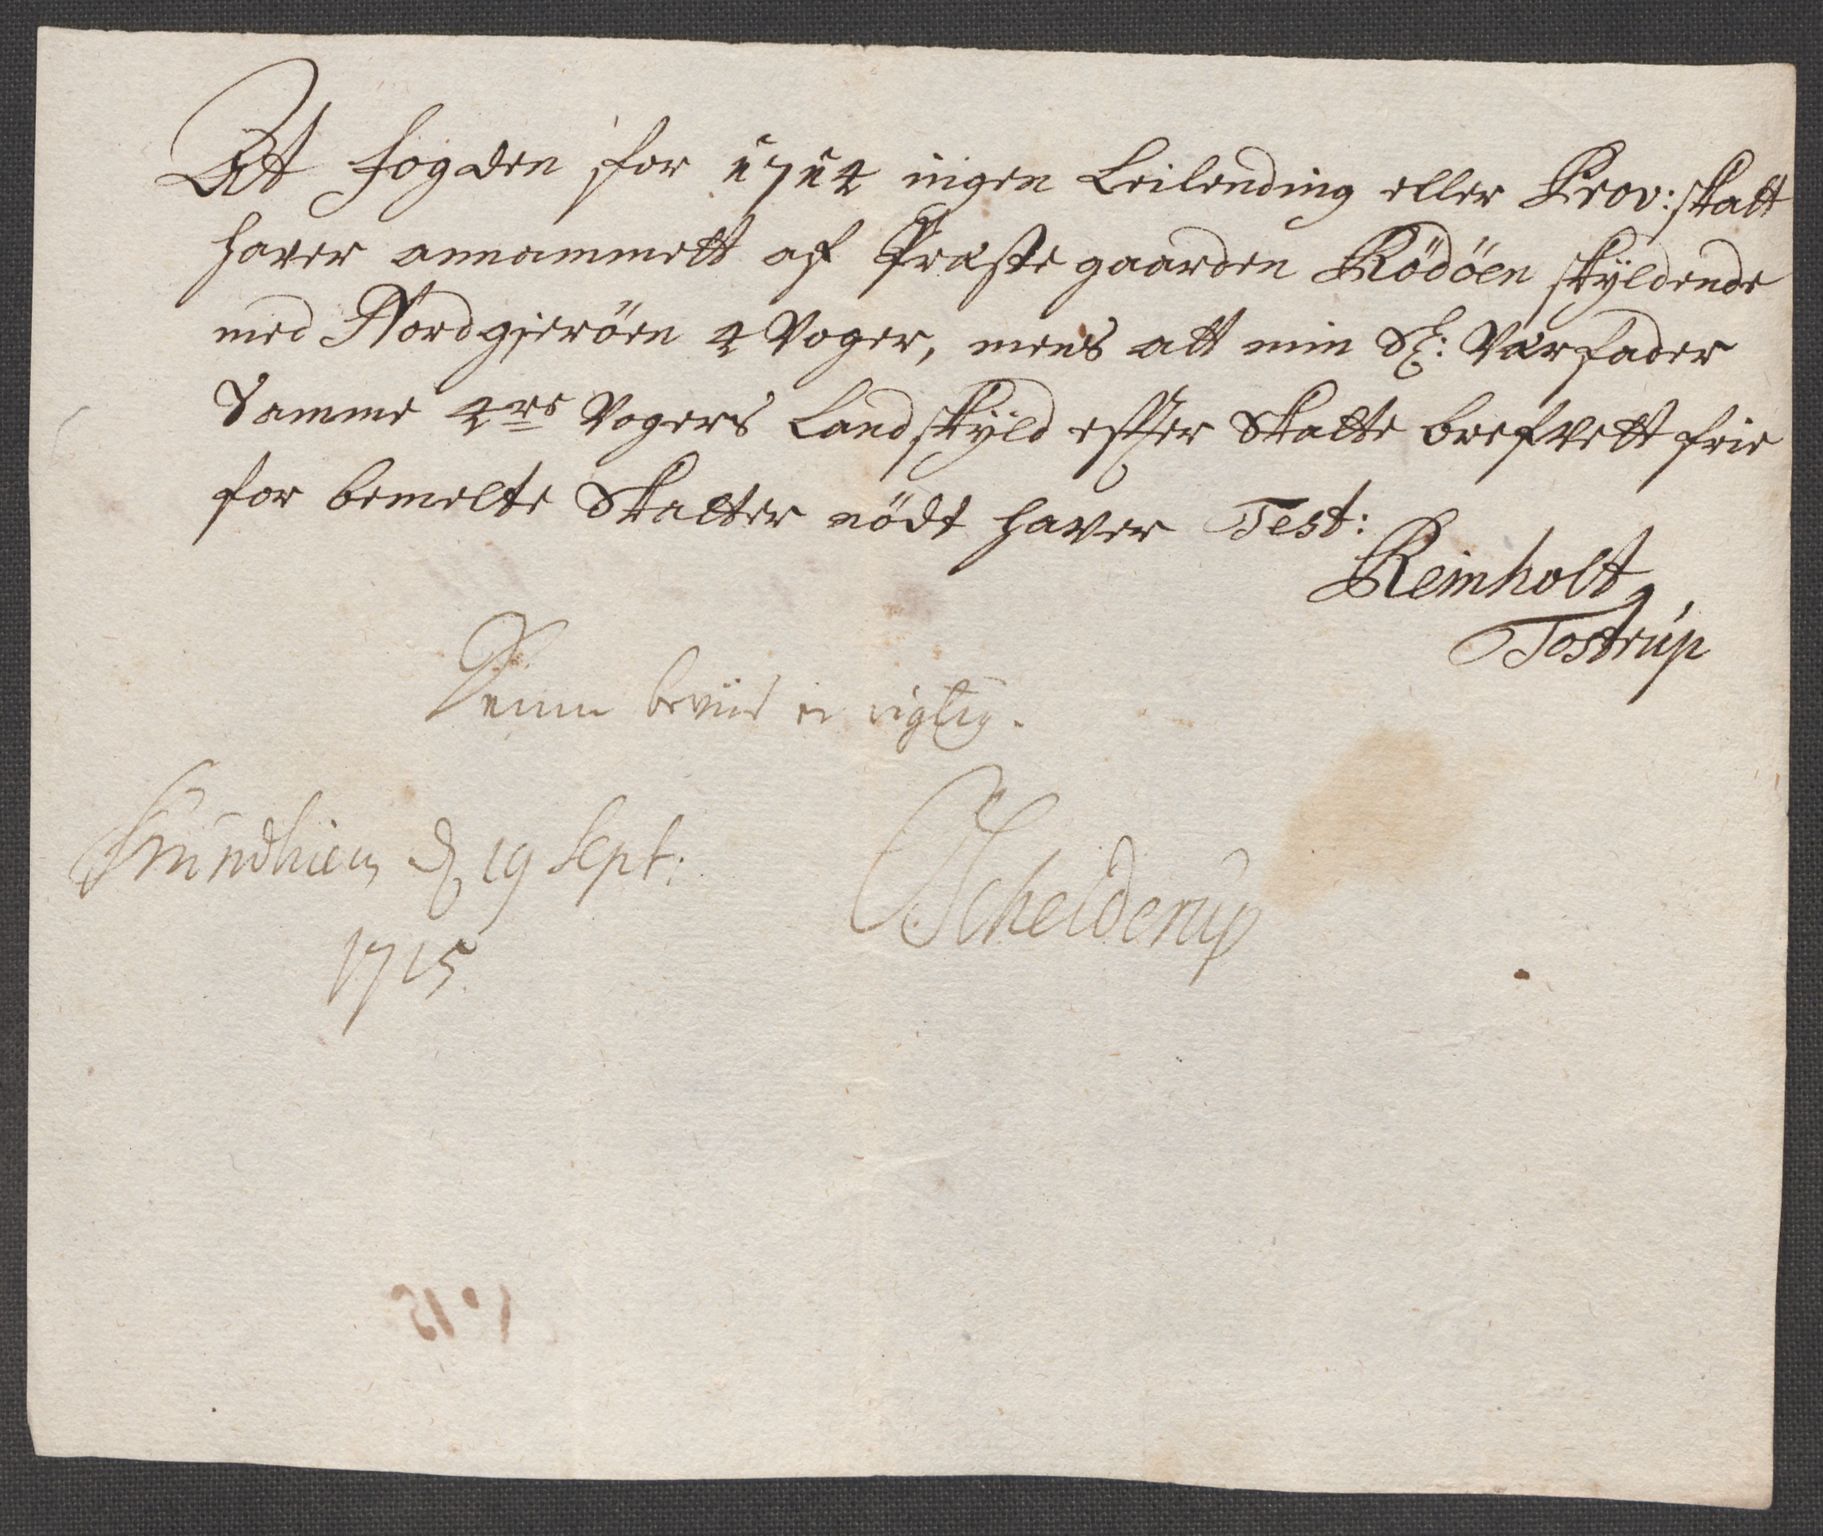 At fogden for 1714 ingen Leilending eller Prov: skatt
haver annammett af Præstegaarden Rödöen skÿldende
med Nordgieröen 4 Voger, mens att min Sl: Værfader
Samme 4re Vogers Landskÿld effter Skatte brefvett frie
for bemelte Skatter nödt haver Test:
Reinholt
Tostrup
Denne beviis er rigtig.
Trundhiem d 19 Sept:
1715.
Schelderup
No 15